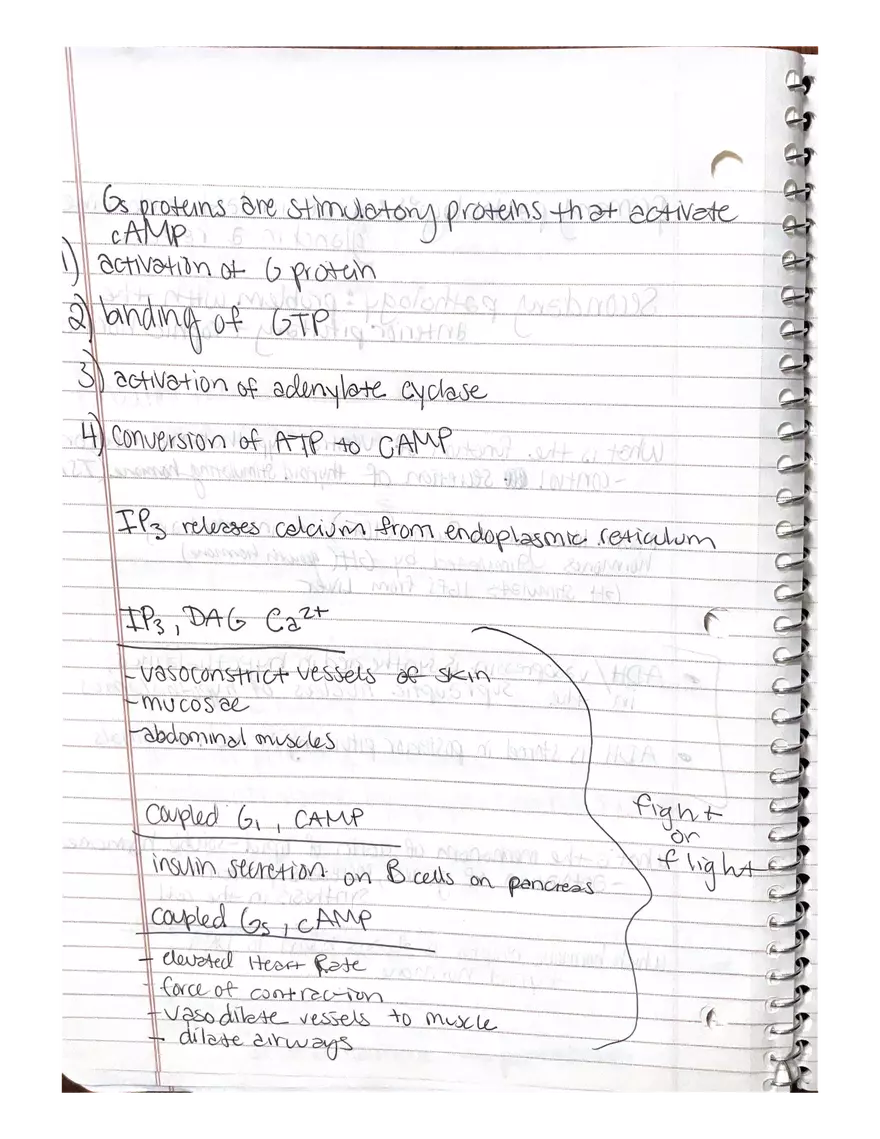 Gs proteins are stimulatory proteins that activate
cAMP
1) activation of G protein
2) binding of GTP
3) activation of adenylate cyclase
4) conversion of ATP to CAMP
IP3 releases calcium from endoplasmic reticulum
IP3, DAG Ca2+
-vasoconstrict vessels of skin
-mucosae
-abdominal muscles
Coupled Gi, CAMP
insulin secretion on B cells on pancreas
coupled Gs, cAMP
- elevated Heart Rate
- force of contraction
- vasodilate vessels to muscle
- dilate airways
fight
or
flight